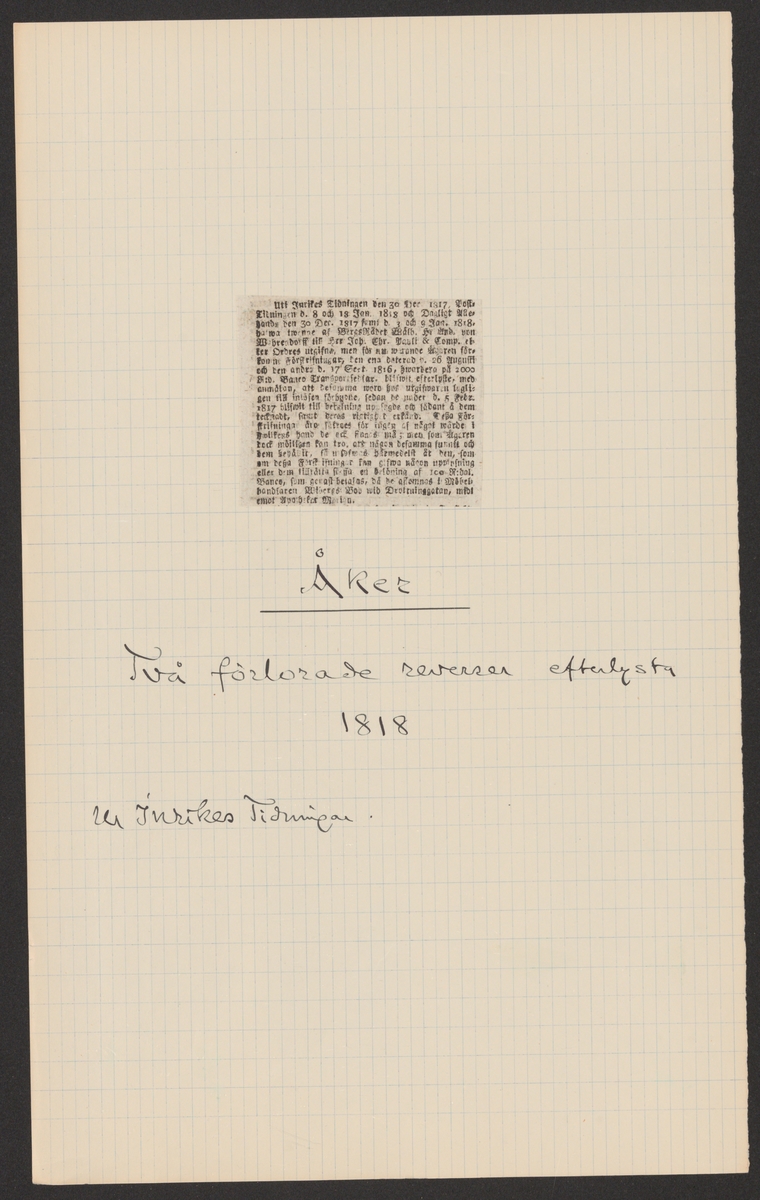 Uti Inrikes Tidningen den 30 Dec. 1817, Post-
Tidningen d. 8 och 18 Jan. 1818 och Dagligt Alle-
handa den 30 Dec. 1817 samt d. 3 och 9 Jan. 1818,
hafwa twenne af BergsRådet Wälb. Hr And. von
Wahrendorff till Herr Joh. Chr. Pauli & Comp. el-
ler Ordres utgifna, men för nu warande Ägaren för-
komne Förskrifningar, den ena daterad d. 26 Augusti
och den andra d. 17 Sept. 1816, hwardera på 2000
R:d. Banco Transportsedlar, blifwit efterlyste, med
anmälan, att desamma woro hos utgifwaren lagli-
gen till inlösen förbudne, sedan de under d. 5 Febr.
1817 blifwit till betalning uppsagde och sådant å dem
tecknadt, samt deras riktighet erkänd. Dessa För-
skrifningar äro således för ingen af något wärde i
hwilkens hand de ock finnas må; men som Ägaren
dock möjligen kan tro, att någon desamma funnit och
dem behållit, så utfästes härmedelst åt den, som
om dessa Förskrifningar kan gifwa någon upplysning
eller dem tillrätta skaffa en belöning af 100 R:dal.
Banco, som genast betalas, då de aflemnas i Möbel-
handlaren Wibergs Bod wid Drottninggatan, midt
emot Apothekar
Åker
Två förlorade reverser efterlysta
1818
Ur Inrikes Tidningar.